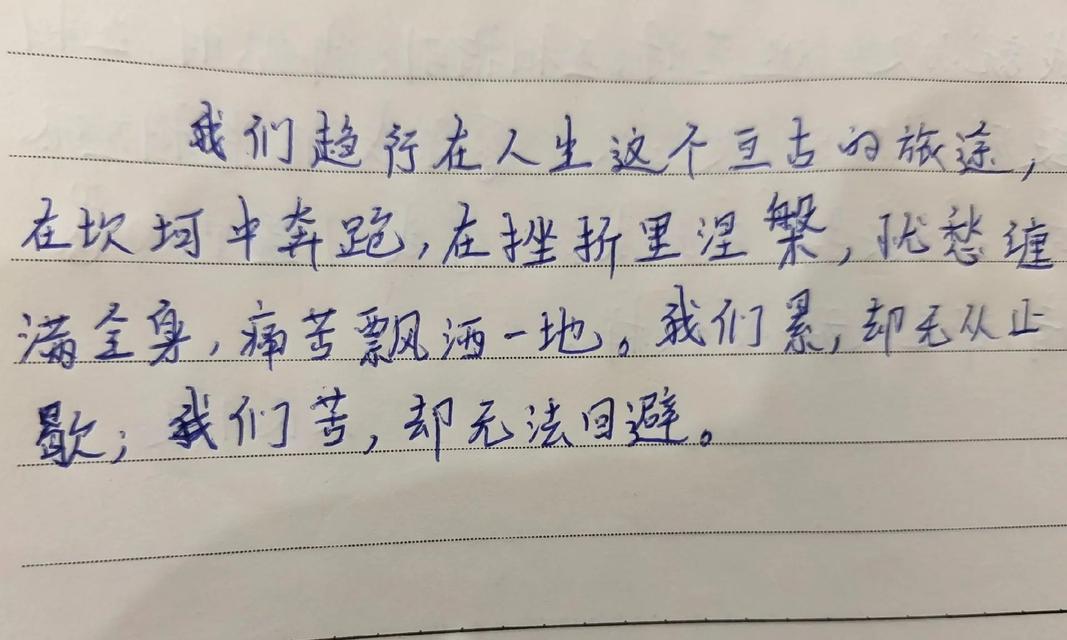 我们趋行在人生这个亘古的旅途,
在坎坷中奔跑,在挫折里涅槃,忧愁缠
满全身,痛苦飘洒一地。我们累,却无从止
歇;我们苦,却无法回避。